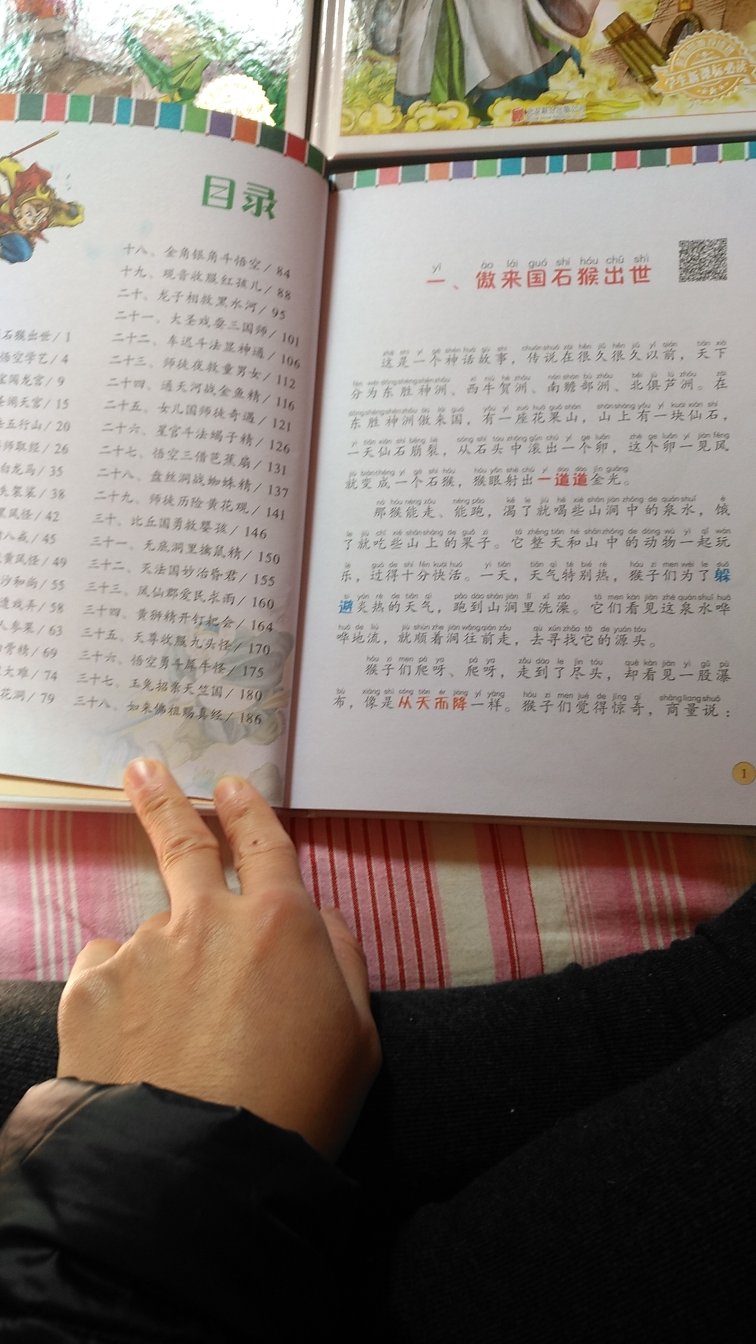 目录
石猴出世/ 1
悟空学艺/ 4
龙宫/ 9
闹天宫/ 15
五行山/ 20
师取经/ 26
白龙马/ 35
失袈裟/ 38
黑风怪/ 42
八戒/ 45
黄风怪/ 49
沙和尚/ 55
遭戏弄/ 58
人参果/ 63
骨精/ 69
大难/ 74
花洞/ 79
十八、金角银角斗悟空/ 84
十九、观音收服红孩儿/ 88
二十、龙子相救黑水河/ 95
二十一、大圣戏耍三国师/ 101
二十二、车迟斗法显神通/ 106
二十三、师徒夜救童男女/ 112
二十四、通天河战金鱼精/ 116
二十五、女儿国师徒奇遇/ 121
二十六、星官斗法蝎子精/ 126
二十七、悟空三借芭蕉扇/ 131
二十八、盘丝洞战蜘蛛精/ 137
二十九、师徒历险黄花观/ 141
三十、比丘国勇救婴孩/ 146
三十一、无底洞里擒鼠精/ 150
三十二、灭法国妙治昏君/ 155
三十三、凤仙郡爱民求雨/ 160
三十四、黄狮精开钉耙会/ 164
三十五、天尊收服九头怪/ 170
三十六、悟空勇斗犀牛怪/ 175
三十七、玉兔招亲天竺国/ 180
三十八、如来佛祖赐真经/ 186
yī ào lái guó shí hóu chū shì
一、傲来国石猴出世
这是一个神话故事，传说在很久很久以前，天下
分为东胜神洲、西牛贺洲、南赡部洲、北俱芦洲。在
东胜神洲傲来国，有一座花果山，山上有一块仙石，
一天仙石崩裂，从石头中滚出一个卵，这个卵一见风
就变成一个石猴，猴眼射出一道道金光。
那猴能走、能跑，渴了就喝些山涧中的泉水，饿
了就吃些山上的果子。它整天和山中的动物一起玩
乐，过得十分快活。一天，天气特别热，猴子们为了躲
避炎热的天气，跑到山涧里洗澡。它们看见这泉水哗
哗地流，就顺着涧往前走，去寻找它的源头。
猴子们爬呀、爬呀，走到了尽头，却看见一股瀑
布，像是从天而降一样。猴子们觉得惊奇，商量说：
1